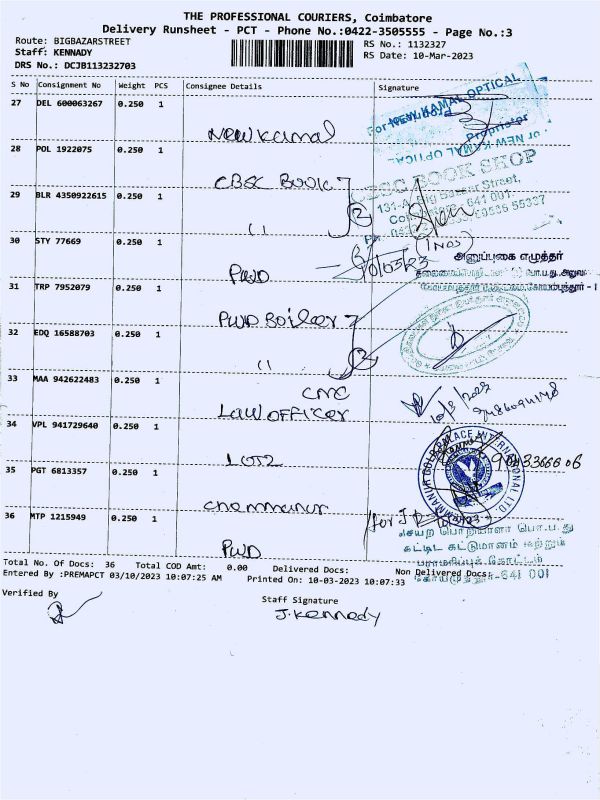 THE PROFESSIONAL COURIERS, Coimbatore
Delivery Runsheet - PCT - Phone No.:0422-3505555 - Page No.:3
Route: BIGBAZARSTREET
RS No.: 1132327
Staff: KENNADY
RS Date: 10-Mar-2023
DRS No.: DCJB113232703
S No Consignment No Weight PCS Consignee Details Signature
27 DEL 600063267 0.250 1
New Kamal
For NEW KAMAL OPTICAL
Proprietor
For NEW KAMAL OPTICAL
28 POL 1922075 0.250 1
CBSC Book
CBSC BOOK SHOP
131-A, Big Bazaar Street,
641 001.
29 BLR 4350922615 0.250 1
(2)
11
30 STY 77669 0.250 1
PWD
10/03/23
அனுப்புகை எழுத்தர்
31 TRP 7952079 0.250 1
PWD Boiler
32 EDQ 16588703 0.250 1
(2)
11
33 MAA 942622483 0.250 1
CMC
Law OFFicer
10/3/2023
34 VPL 941729640 0.250 1
LOT2
35 PGT 6813357 0.250 1
Chemmanur
36 MTP 1215949 0.250 1
PWD
செயற் பொறியாளர் பொ.ப.து
கட்டிட கட்டுமானம் மற்றும்
பராமரிப்புக் கோட்டம்
கோயமுத்தூர்-641 001
Total No. Of Docs: 36 Total COD Amt: 0.00 Delivered Docs: Non Delivered Docs:
Entered By :PREMAPCT 03/10/2023 10:07:25 AM Printed On: 10-03-2023 10:07:33
Verified By
Staff Signature
J. Kennady